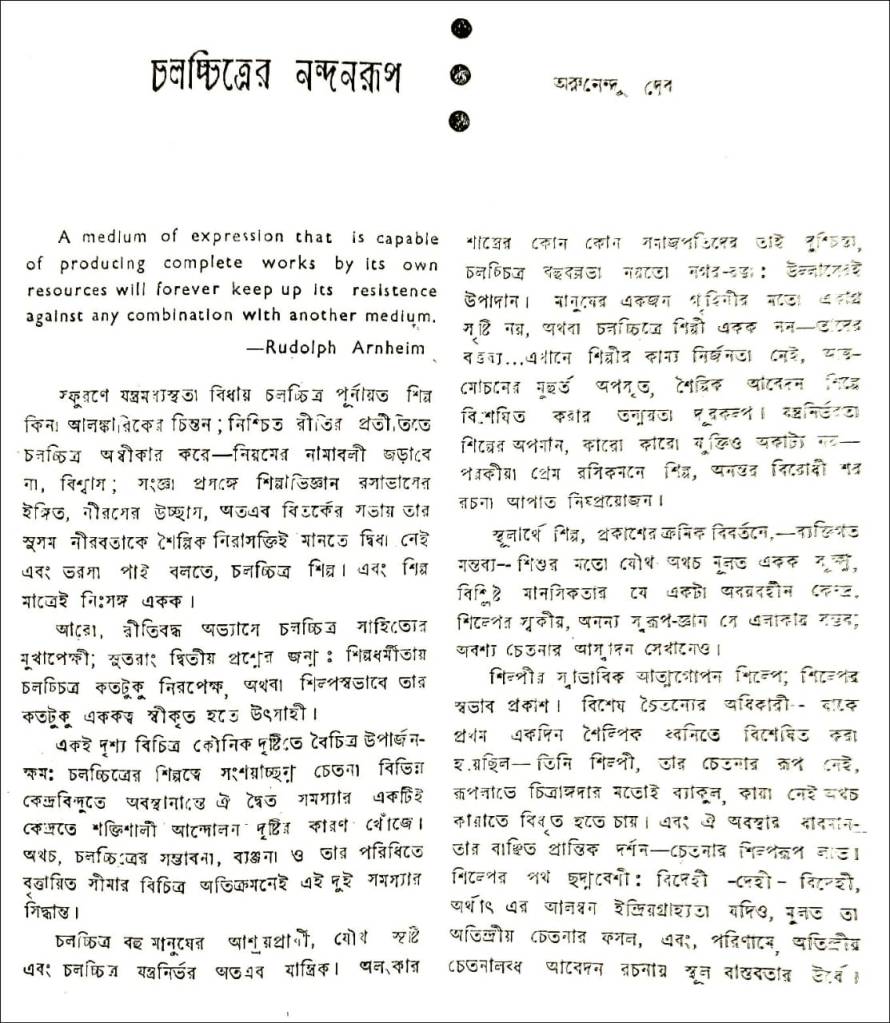 চলচ্চিত্রের নন্দনরূপ
অরুনেন্দু দেব
A medium of expression that is capable
of producing complete works by its own
resources will forever keep up its resistence
against any combination with another medium.
—Rudolph Arnheim
স্ফুরণে যন্ত্রমধ্যস্থতা বিধায় চলচ্চিত্র পূর্নায়ত শিল্প
কিনা আলঙ্কারিকের চিন্তন ; নিশ্চিত রীতির প্রতীতিতে
চলচ্চিত্র অস্বীকার করে—নিয়মের নামাবলী জড়াবে
না, বিশ্বাস ; সংজ্ঞা প্রসঙ্গে শিল্পাভিজ্ঞান রসাভাসের
ইঙ্গিত, নীরসের উচ্ছাস, অতএব বিতর্কের সভায় তার
সুসম নীরবতাকে শৈল্পিক নিরাসক্তিই মানতে দ্বিধা নেই
এবং ভরসা পাই বলতে, চলচ্চিত্র শিল্প । এবং শিল্প
মাত্রেই নিঃসঙ্গ একক ।
আরো, রীতিবদ্ধ অভ্যাসে চলচ্চিত্র সাহিত্যের
মুখাপেক্ষী; সুতরাং দ্বিতীয় প্রশ্নের জন্ম : শিল্পধর্মীতায়
চলচ্চিত্র কতটুকু নিরপেক্ষ, অথবা শিল্পস্বভাবে তার
কতটুকু এককত্ব স্বীকৃত হতে উৎসাহী ।
একই দৃশ্য বিচিত্র কৌনিক দৃষ্টিতে বৈচিত্র উপার্জন-
ক্ষম: চলচ্চিত্রের শিল্পত্বে সংশয়াচ্ছন্ন চেতনা বিভিন্ন
কেন্দ্রবিন্দুতে অবস্থানান্তে ঐ দ্বৈত সমস্যার একটিই
কেন্দ্রতে শক্তিশালী আন্দোলন দৃষ্টির কারণ খোঁজে ।
অথচ, চলচ্চিত্রের সম্ভাবনা, ব্যঞ্জনা ও তার পরিধিতে
বৃত্তায়িত সীমার বিচিত্র অতিক্রমনেই এই দুই সমস্যার
সিদ্ধান্ত ।
চলচ্চিত্র বহু মানুষের আশ্রয়প্রার্থী, যৌথ সৃষ্টি
এবং চলচ্চিত্র যন্ত্রনির্ভর অতএব যান্ত্রিক । অলংকার
শাস্ত্রের কোন কোন সমাজপতিদের তাই দুশ্চিন্তা,
চলচ্চিত্র বহুবল্লভা নয়তো নগর-রম্ভা : উল্লাসেরই
উপাদান । মানুষের একজন গৃহিনীর মতো একাগ্র
সৃষ্টি নয়, অথবা চলচ্চিত্রে শিল্পী একক নন—তাদের
বক্তব্য...এখানে শিল্পীর কাম্য নির্জনতা নেই,
মোচনের মুহূর্ত অপহৃত, শৈল্পিক আবেদন শিল্পে
বিশেষিত করার তন্ময়তা দূরকল্প । যন্ত্রনির্ভরতা
শিল্পের অপমান, কারো কারো যুক্তিও অকাট্য নয়—
পরকীয়া প্রেম রসিকমনে শিল্প, অনন্তর বিরোধী শর
রচনা আপাত নিষ্প্রয়োজন ।
স্থূলার্থে শিল্প, প্রকাশের ক্রমিক বিবর্তনে,—ব্যক্তিগত
মন্তব্য—শিশুর মতো যৌথ অথচ মূলত একক সূক্ষ্ম,
বিশ্লিষ্ট মানসিকতার যে একটা অবয়বহীন কেন্দ্র,
শিল্পের স্বকীয়, অনন্য স্বরূপ-জ্ঞান সে এলাকায় সম্ভব;
অবশ্য চেতনার আস্বাদন সেখানেও ।
শিল্পীর স্বাভাবিক আত্মগোপন শিল্পে; শিল্পের
স্বভাব প্রকাশ । বিশেষ চৈতন্যের অধিকারী-- যাকে
প্রথম একদিন শৈল্পিক ধ্বনিতে বিশেষিত করা
হয়েছিল— তিনি শিল্পী, তার চেতনার রূপ নেই,
রূপলাভে চিত্রাঙ্গদার মতোই ব্যাকুল, কায়া নেই অথচ
কায়াতে বিবৃত হতে চায় । এবং ঐ অবস্থার ধাবমান-
তার বাঞ্ছিত প্রান্তিক দর্শন—চেতনার শিল্পরূপ লাভ ।
শিল্পের পথ ছদ্মবেশী : বিদেহী -দেহী - বিদেহী,
অর্থাৎ এর আলম্বন ইন্দ্রিয়গ্রাহ্যতা যদিও, মূলত তা
অতিন্দ্রীয় চেতনার ফসল, এবং, পরিণামে, অতিন্দ্রীয়
চেতনালব্ধ আবেদন রচনায় স্থূল বাস্তবতার উর্ধে ।